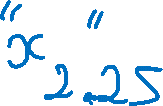 "x
2"
2.25